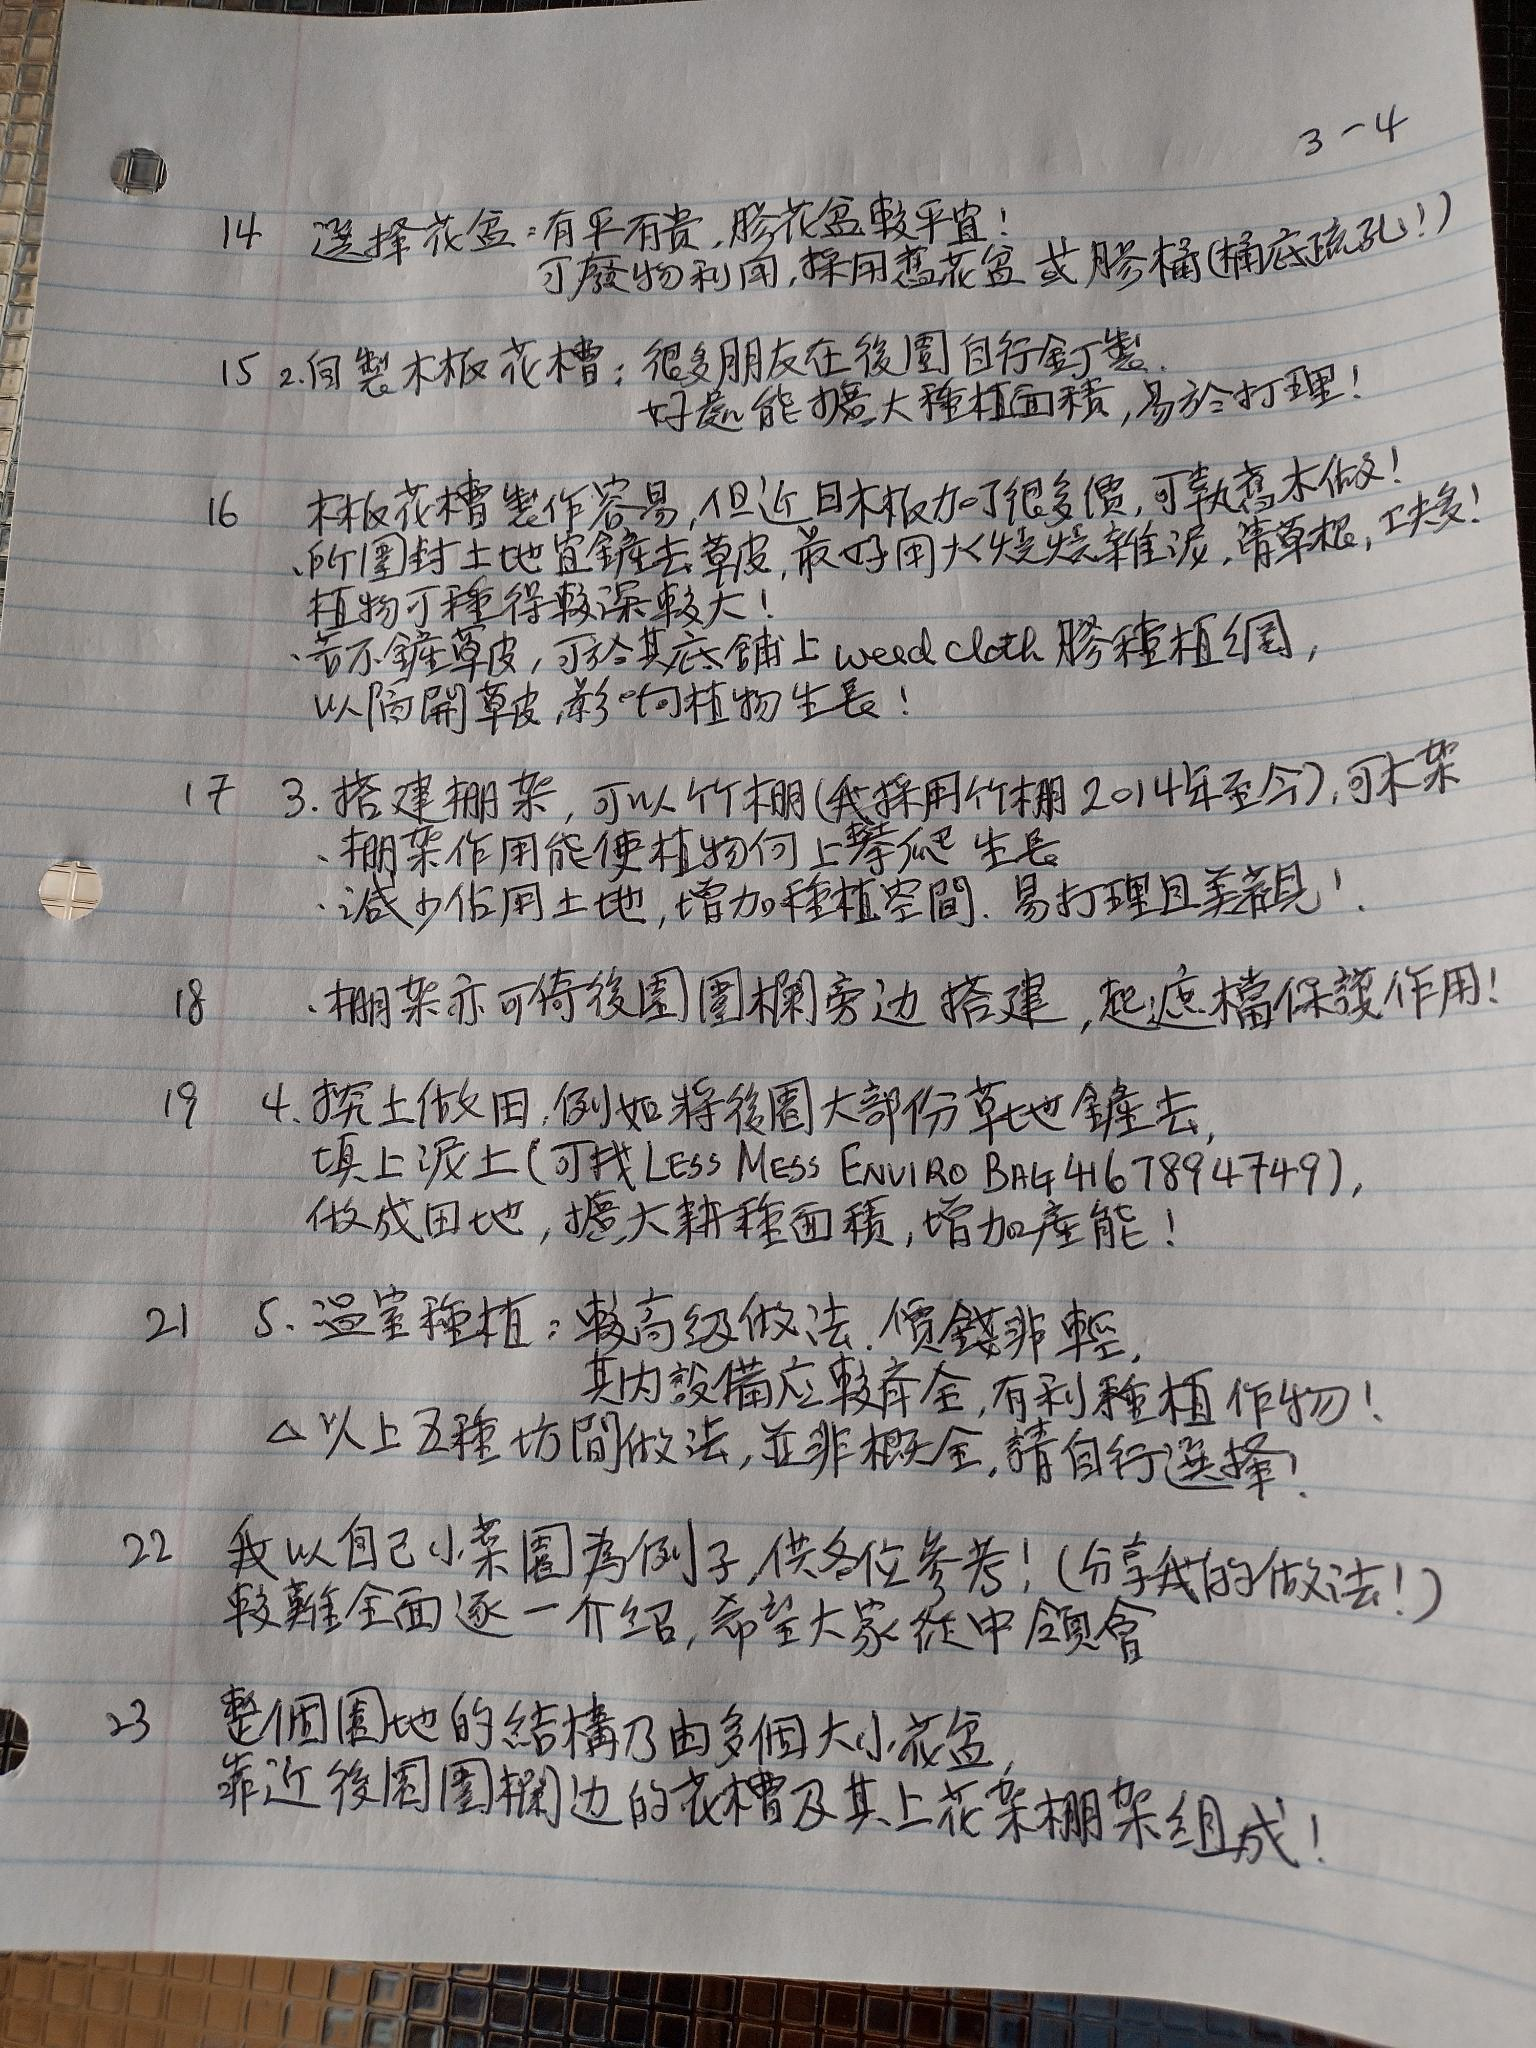 3-4
14 選擇花盆:有平有贵,膠花盆較平宜!
可廢物利用,採用舊花盆 或膠桶(桶底疏孔!)
15 2.自製木板花槽:很多朋友在後園自行釘製.
好處能擴大種植面積,易於打理!
16 木板花槽製作容易,但近日木板加了很多價,可執舊木做!
、所圍封土地宜鏟去草皮,最好用火燒燒雜泥,清草根,工夫多!
植物可種得較深較大!
、若不鏟草皮,可於其底鋪上weed cloth膠種植網,
以隔開草皮,影响植物生長!
17 3.搭建棚架,可以竹棚(我採用竹棚2014年至今),可木架
、棚架作用能使植物向上攀爬生長
、減少佔用土地,增加種植空間.易打理且美觀!
18 、棚架亦可倚後園圍欄旁边搭建,起遮檔保護作用!
19 4.挖土做田:例如將後園大部份草地鏟去,
填上泥土(可找LESS MESS ENVIRO BAG 4167894749),
做成田地,擴大耕種面積,增加産能!
21 5.溫室種植:較高级做法.價錢非輕,
其内設備应較齊全,有利種植作物!
△以上五種坊間做法,並非概全,請自行選擇!
22 我以自己小菜園為例子,供各位參考!(分享我的做法!)
較難全面逐一介绍,希望大家從中領會
23 整個園地的結構乃由多個大小花盆,
靠近後園圍欄边的花槽及其上花架棚架组成!